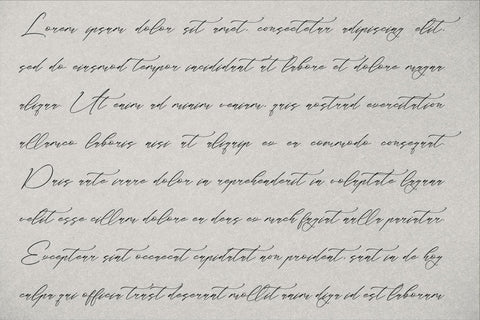 Lorem ipsum dolor sit amet, consectetur adipiscing elit,
sed do eiusmod tempor incididunt ut labore et dolore magna
aliqua. Ut enim ad minim veniam, quis nostrud exercitation
ullamco laboris nisi ut aliquip ex ea commodo consequat.
Duis aute irure dolor in reprehenderit in voluptate
velit esse cillum dolore eu deus ex mach fugiat nulla pariatur.
Excepteur sint occaecat cupidatat non proident, sunt in de hoy
culpa qui officia trust deserunt mollit anim id est laborum